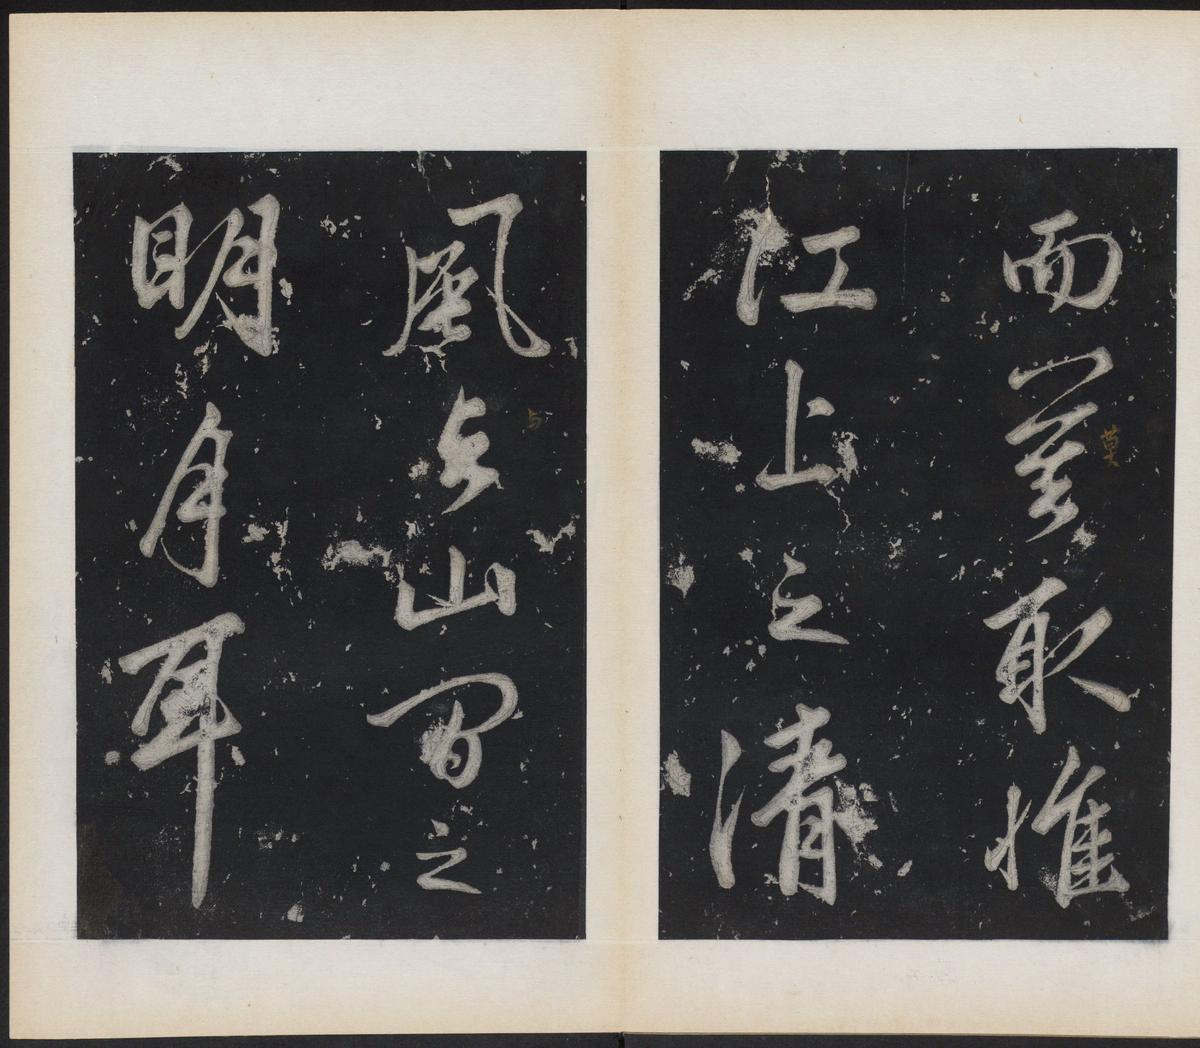 而莫取惟
莫
江上之清
風与山間之
与
明月耳